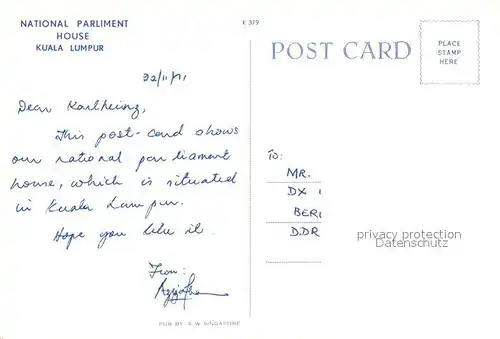 NATIONAL PARLIMENT
HOUSE
KUALA LUMPUR
K 379
POST CARD
PLACE
STAMP
HERE
Dear Karlheinz,
This post-card shows
our national parliament
house, which is situated
in Kuala Lumpur.
Hope you like it.
From:
TO:
MR.
DX
BER
D.DR
privacy protection
Datenschutz
PUB BY S.W. SINGAPORE